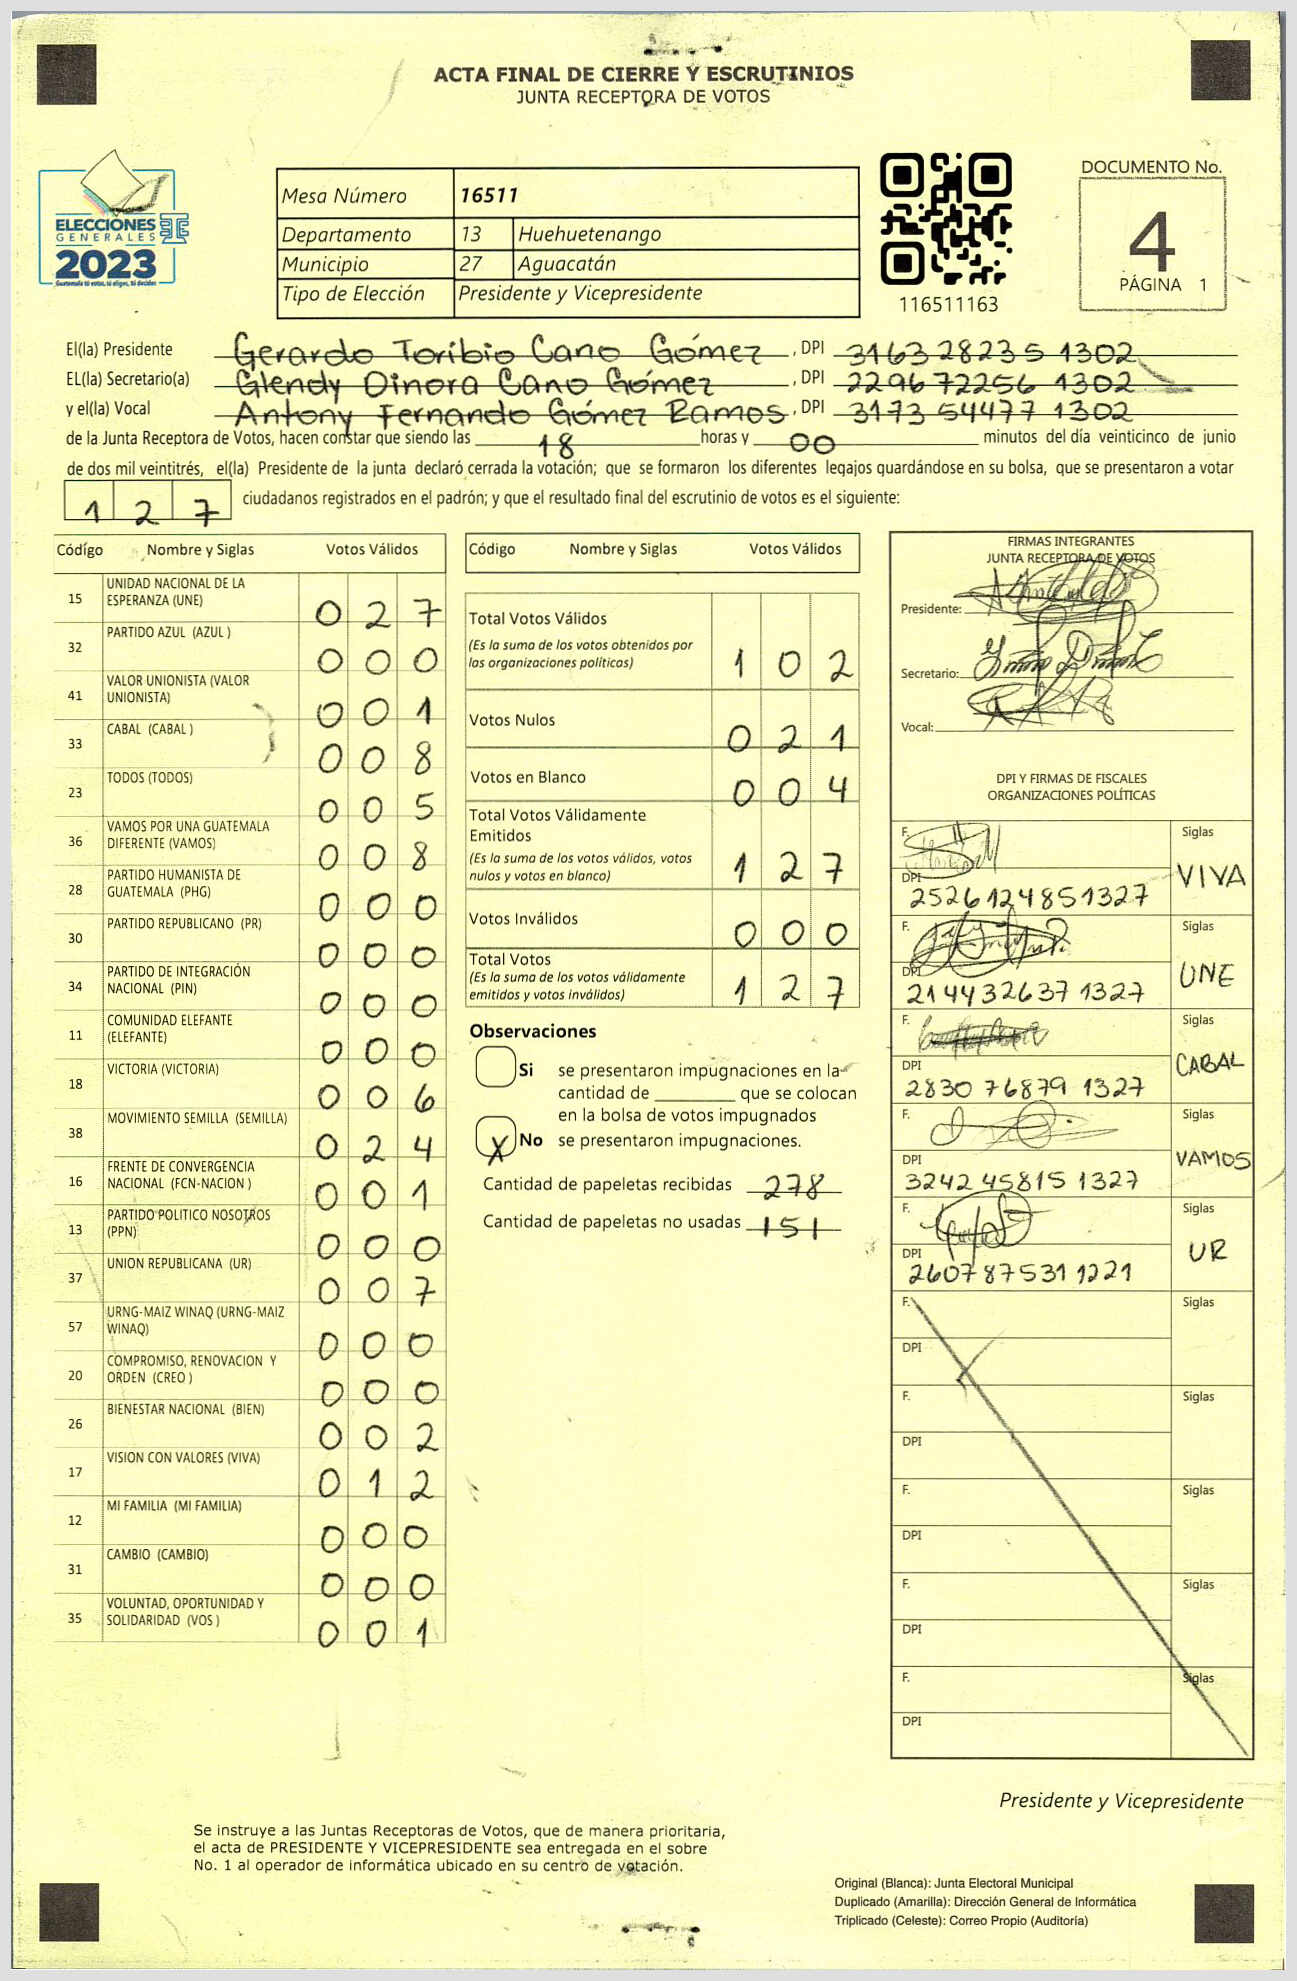 ACTA FINAL DE CIERRE Y ESCRUTINIOS
JUNTA RECEPTORA DE VOTOS
ELECCIONES
GENERALES
2023
Guatemala tú votas, tú eliges, tú decides
Mesa Número 16511
Departamento 13 Huehuetenango
Municipio 27 Aguacatán
Tipo de Elección Presidente y Vicepresidente
116511163
DOCUMENTO No.
4
PÁGINA 1
El(la) Presidente Gerardo Toribio Cano Gómez , DPI 3163 28235 1302
EL(la) Secretario(a) Glendy Dinora Cano Gómez , DPI 2296 72256 1302
y el(la) Vocal Antony Fernando Gómez Ramos , DPI 3173 54477 1302
de la Junta Receptora de Votos, hacen constar que siendo las 18 horas y 00 minutos del día veinticinco de junio
de dos mil veintitrés, el(la) Presidente de la junta declaró cerrada la votación; que se formaron los diferentes legajos guardándose en su bolsa, que se presentaron a votar
1 2 7 ciudadanos registrados en el padrón; y que el resultado final del escrutinio de votos es el siguiente:
Código Nombre y Siglas Votos Válidos
15 UNIDAD NACIONAL DE LA ESPERANZA (UNE) 0 2 7
32 PARTIDO AZUL (AZUL ) 0 0 0
41 VALOR UNIONISTA (VALOR UNIONISTA) 0 0 1
33 CABAL (CABAL ) 0 0 8
23 TODOS (TODOS) 0 0 5
36 VAMOS POR UNA GUATEMALA DIFERENTE (VAMOS) 0 0 8
28 PARTIDO HUMANISTA DE GUATEMALA (PHG) 0 0 0
30 PARTIDO REPUBLICANO (PR) 0 0 0
34 PARTIDO DE INTEGRACIÓN NACIONAL (PIN) 0 0 0
11 COMUNIDAD ELEFANTE (ELEFANTE) 0 0 0
18 VICTORIA (VICTORIA) 0 0 6
38 MOVIMIENTO SEMILLA (SEMILLA) 0 2 4
16 FRENTE DE CONVERGENCIA NACIONAL (FCN-NACION ) 0 0 1
13 PARTIDO POLITICO NOSOTROS (PPN) 0 0 0
37 UNION REPUBLICANA (UR) 0 0 7
57 URNG-MAIZ WINAQ (URNG-MAIZ WINAQ) 0 0 0
20 COMPROMISO, RENOVACION Y ORDEN (CREO ) 0 0 0
26 BIENESTAR NACIONAL (BIEN) 0 0 2
17 VISION CON VALORES (VIVA) 0 1 2
12 MI FAMILIA (MI FAMILIA) 0 0 0
31 CAMBIO (CAMBIO) 0 0 0
35 VOLUNTAD, OPORTUNIDAD Y SOLIDARIDAD (VOS ) 0 0 1
Código Nombre y Siglas Votos Válidos
Total Votos Válidos
(Es la suma de los votos obtenidos por
las organizaciones políticas) 1 0 2
Votos Nulos 0 2 1
Votos en Blanco 0 0 4
Total Votos Válidamente
Emitidos
(Es la suma de los votos válidos, votos
nulos y votos en blanco) 1 2 7
Votos Inválidos 0 0 0
Total Votos
(Es la suma de los votos válidamente
emitidos y votos inválidos) 1 2 7
Observaciones
Si se presentaron impugnaciones en la
cantidad de ________ que se colocan
en la bolsa de votos impugnados
X No se presentaron impugnaciones.
Cantidad de papeletas recibidas 278
Cantidad de papeletas no usadas 151
FIRMAS INTEGRANTES
JUNTA RECEPTORA DE VOTOS
Presidente:
Secretario:
Vocal:
DPI Y FIRMAS DE FISCALES
ORGANIZACIONES POLÍTICAS
F. Siglas
DPI VIVA
2526124851327
F. Siglas
DPI UNE
214432637 1327
F. Siglas
DPI CABAL
2830 76879 1327
F. Siglas
DPI VAMOS
3242 45815 1327
F. Siglas
DPI UR
2607 87531 1221
F. Siglas
DPI
F. Siglas
DPI
F. Siglas
DPI
F. Siglas
DPI
F. Siglas
DPI
Presidente y Vicepresidente
Se instruye a las Juntas Receptoras de Votos, que de manera prioritaria,
el acta de PRESIDENTE Y VICEPRESIDENTE sea entregada en el sobre
No. 1 al operador de informática ubicado en su centro de votación.
Original (Blanca): Junta Electoral Municipal
Duplicado (Amarilla): Dirección General de Informática
Triplicado (Celeste): Correo Propio (Auditoría)